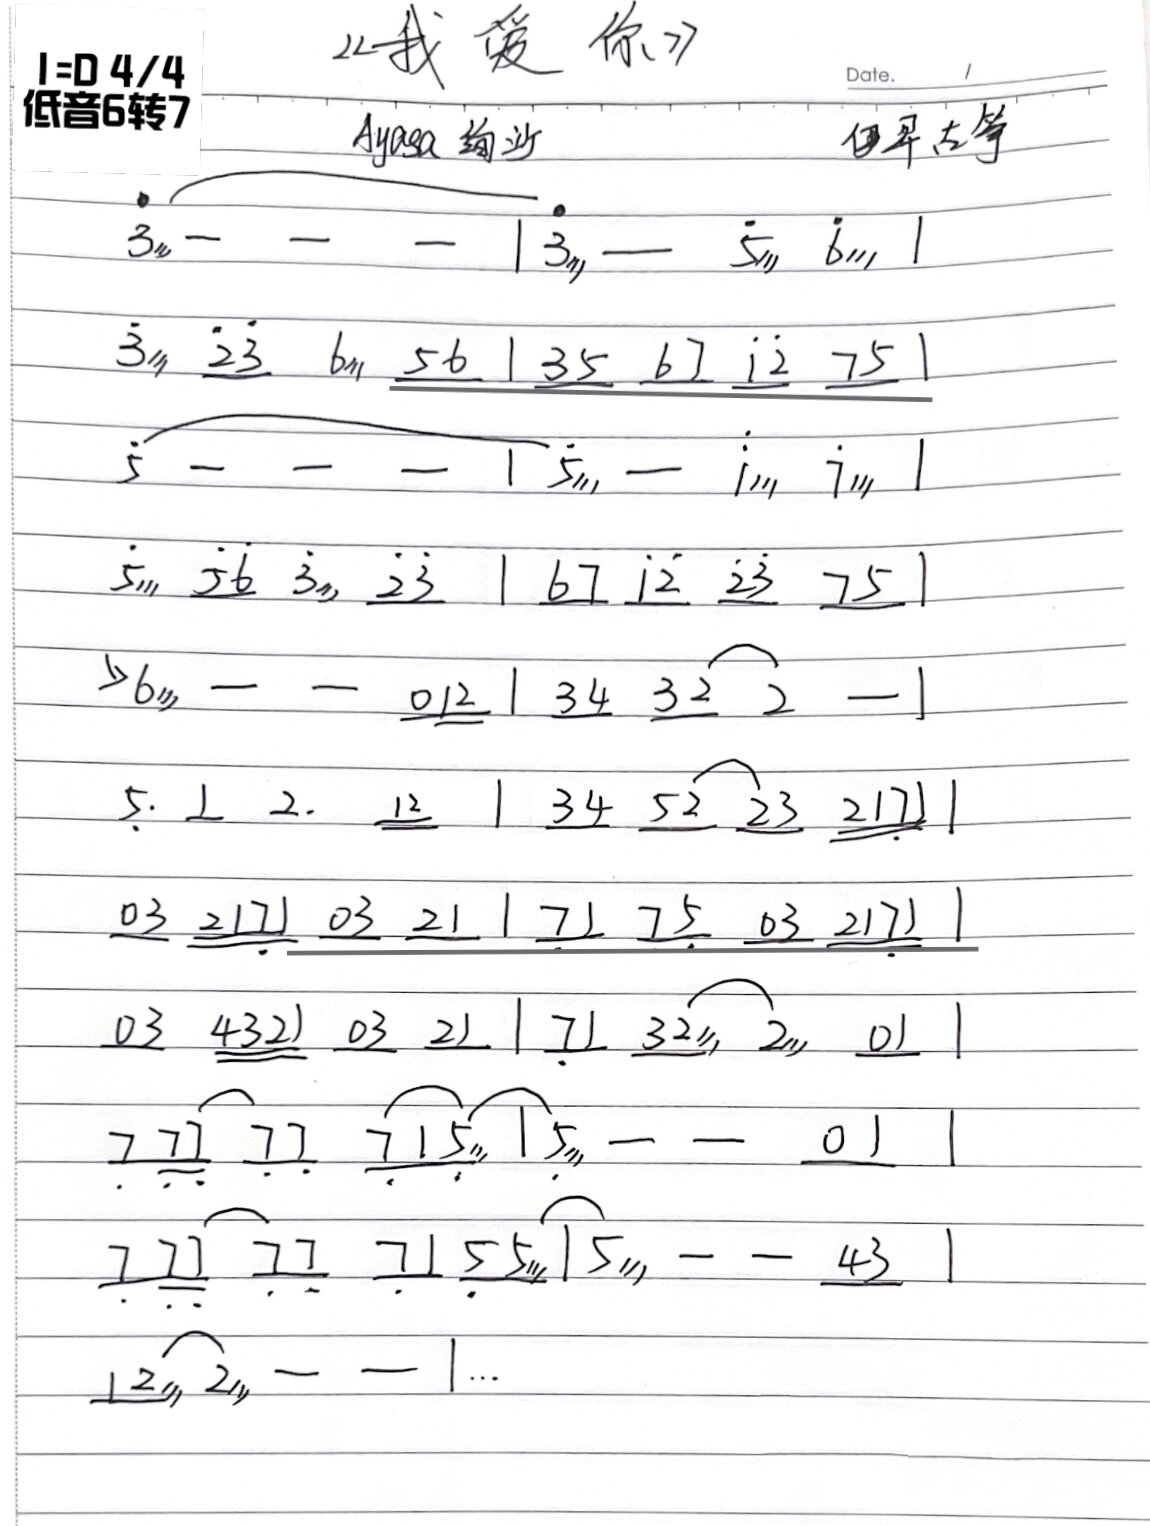 《我 爱 你》
1=D 4/4
低音6转7
Date. /
Ayasa 绚沙 伊犁古筝
3̇〃 — — — | 3̇〃 — 5̇/// 6̇/// |
3̇〃 2̇3̇ 6〃 56 | 35 67 1̇2̇ 75 |
5̇ — — — | 5̇/// — 1̇/// 7̇/// |
5̇/// 5̇6̇ 3̇〃 2̇3̇ | 67 1̇2̇ 2̇3̇ 75 |
>6〃 — — 012 | 34 32 2 — |
5̣. 1 2. 12 | 34 52 23 217̣1 |
03 217̣1 03 21 | 7̣1 75̣ 03 217̣1 |
03 4321 03 21 | 7̣1 32〃 2〃 01 |
7̣ 7̣7̣ 7̣7̣ 7̣15̣〃 | 5̣〃 — — 01 |
7̣ 7̣7̣ 7̣7̣ 7̣1 5̣5/// | 5/// — — 43 |
12/// 2/// — — | ...